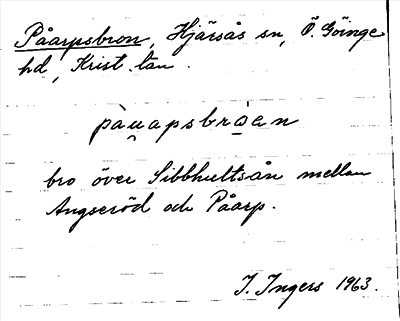 Påarpsbron, Hjärsås sn, Ö. Göinge
hd, Krist. län.
pàu̯apsbrɑ̀en
bro över Sibbhultsån mellan
Angseröd och Påarp.
I. Ingers 1963.